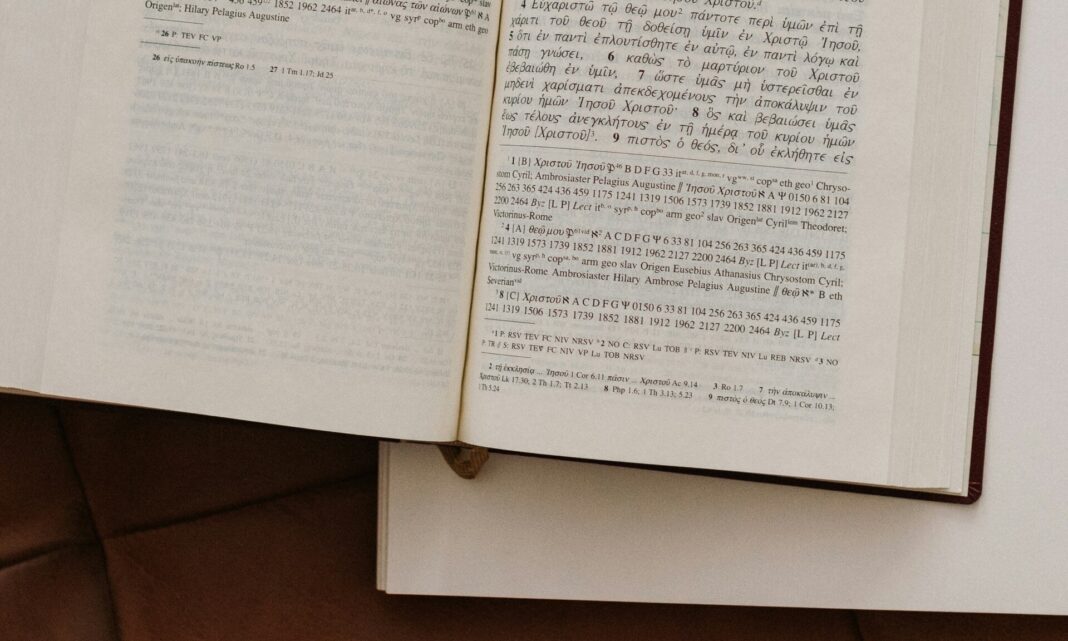 Origen^lat; Hilary Pelagius Augustine
26 P: TEV FC VP
26 εἰς ὑπακοὴν πίστεως Ro 1.5 27 1 Tm 1.17; Jd 25
4 Εὐχαριστῶ τῷ θεῷ μου² πάντοτε περὶ ὑμῶν ἐπὶ τῇ
χάριτι τοῦ θεοῦ τῇ δοθείσῃ ὑμῖν ἐν Χριστῷ Ἰησοῦ,
5 ὅτι ἐν παντὶ ἐπλουτίσθητε ἐν αὐτῷ, ἐν παντὶ λόγῳ καὶ
πάσῃ γνώσει, 6 καθὼς τὸ μαρτύριον τοῦ Χριστοῦ
ἐβεβαιώθη ἐν ὑμῖν, 7 ὥστε ὑμᾶς μὴ ὑστερεῖσθαι ἐν
μηδενὶ χαρίσματι ἀπεκδεχομένους τὴν ἀποκάλυψιν τοῦ
κυρίου ἡμῶν Ἰησοῦ Χριστοῦ· 8 ὃς καὶ βεβαιώσει ὑμᾶς
ἕως τέλους ἀνεγκλήτους ἐν τῇ ἡμέρᾳ τοῦ κυρίου ἡμῶν
Ἰησοῦ [Χριστοῦ]³. 9 πιστὸς ὁ θεός, δι' οὗ ἐκλήθητε εἰς
¹ 1 {B} Χριστοῦ Ἰησοῦ 𝔓⁴⁶ B D F G 33 it^ar, d, f, g, mon, r vg^ww, st cop^sa eth geo¹ Chryso-
stom Cyril; Ambrosiaster Pelagius Augustine // Ἰησοῦ Χριστοῦ ℵ A Ψ 0150 6 81 104
256 263 365 424 436 459 1175 1241 1319 1506 1573 1739 1852 1881 1912 1962 2127
2200 2464 Byz [L P] Lect it^b, o syr^p, h cop^bo arm geo² slav Origen^lat Cyril^lem Theodoret;
Victorinus-Rome
² 4 {A} θεῷ μου 𝔓^61vid ℵ² A C D F G Ψ 6 33 81 104 256 263 365 424 436 459 1175
1241 1319 1573 1739 1852 1881 1912 1962 2127 2200 2464 Byz [L P] Lect it^(ar), b, d, f, g,
vg syr^p, h cop^sa, bo arm geo slav Origen Eusebius Athanasius Chrysostom Cyril;
Victorinus-Rome Ambrosiaster Hilary Ambrose Pelagius Augustine // θεῷ ℵ* B eth
Severian^vid
³ 8 {C} Χριστοῦ ℵ A C D F G Ψ 0150 6 33 81 104 256 263 365 424 436 459 1175
1241 1319 1506 1573 1739 1852 1881 1912 1962 2127 2200 2464 Byz [L P] Lect
^a 1 P: RSV TEV FC NIV NRSV ^b 2 NO C: RSV Lu TOB // P: RSV TEV NIV Lu REB NRSV ^d 3 NO
P: TR // S: RSV TEV FC NIV VP Lu TOB NRSV
2 τῇ ἐκκλησίᾳ ... Ἰησοῦ 1 Cor 6.11 πᾶσιν ... Χριστοῦ Ac 9.14 3 Ro 1.7 7 τὴν ἀποκάλυψιν ...
Χριστοῦ Lk 17.30; 2 Th 1.7; Tt 2.13 8 Php 1.6; 1 Th 3.13; 5.23 9 πιστὸς ὁ θεός Dt 7.9; 1 Cor 10.13;
1 Th 5.24